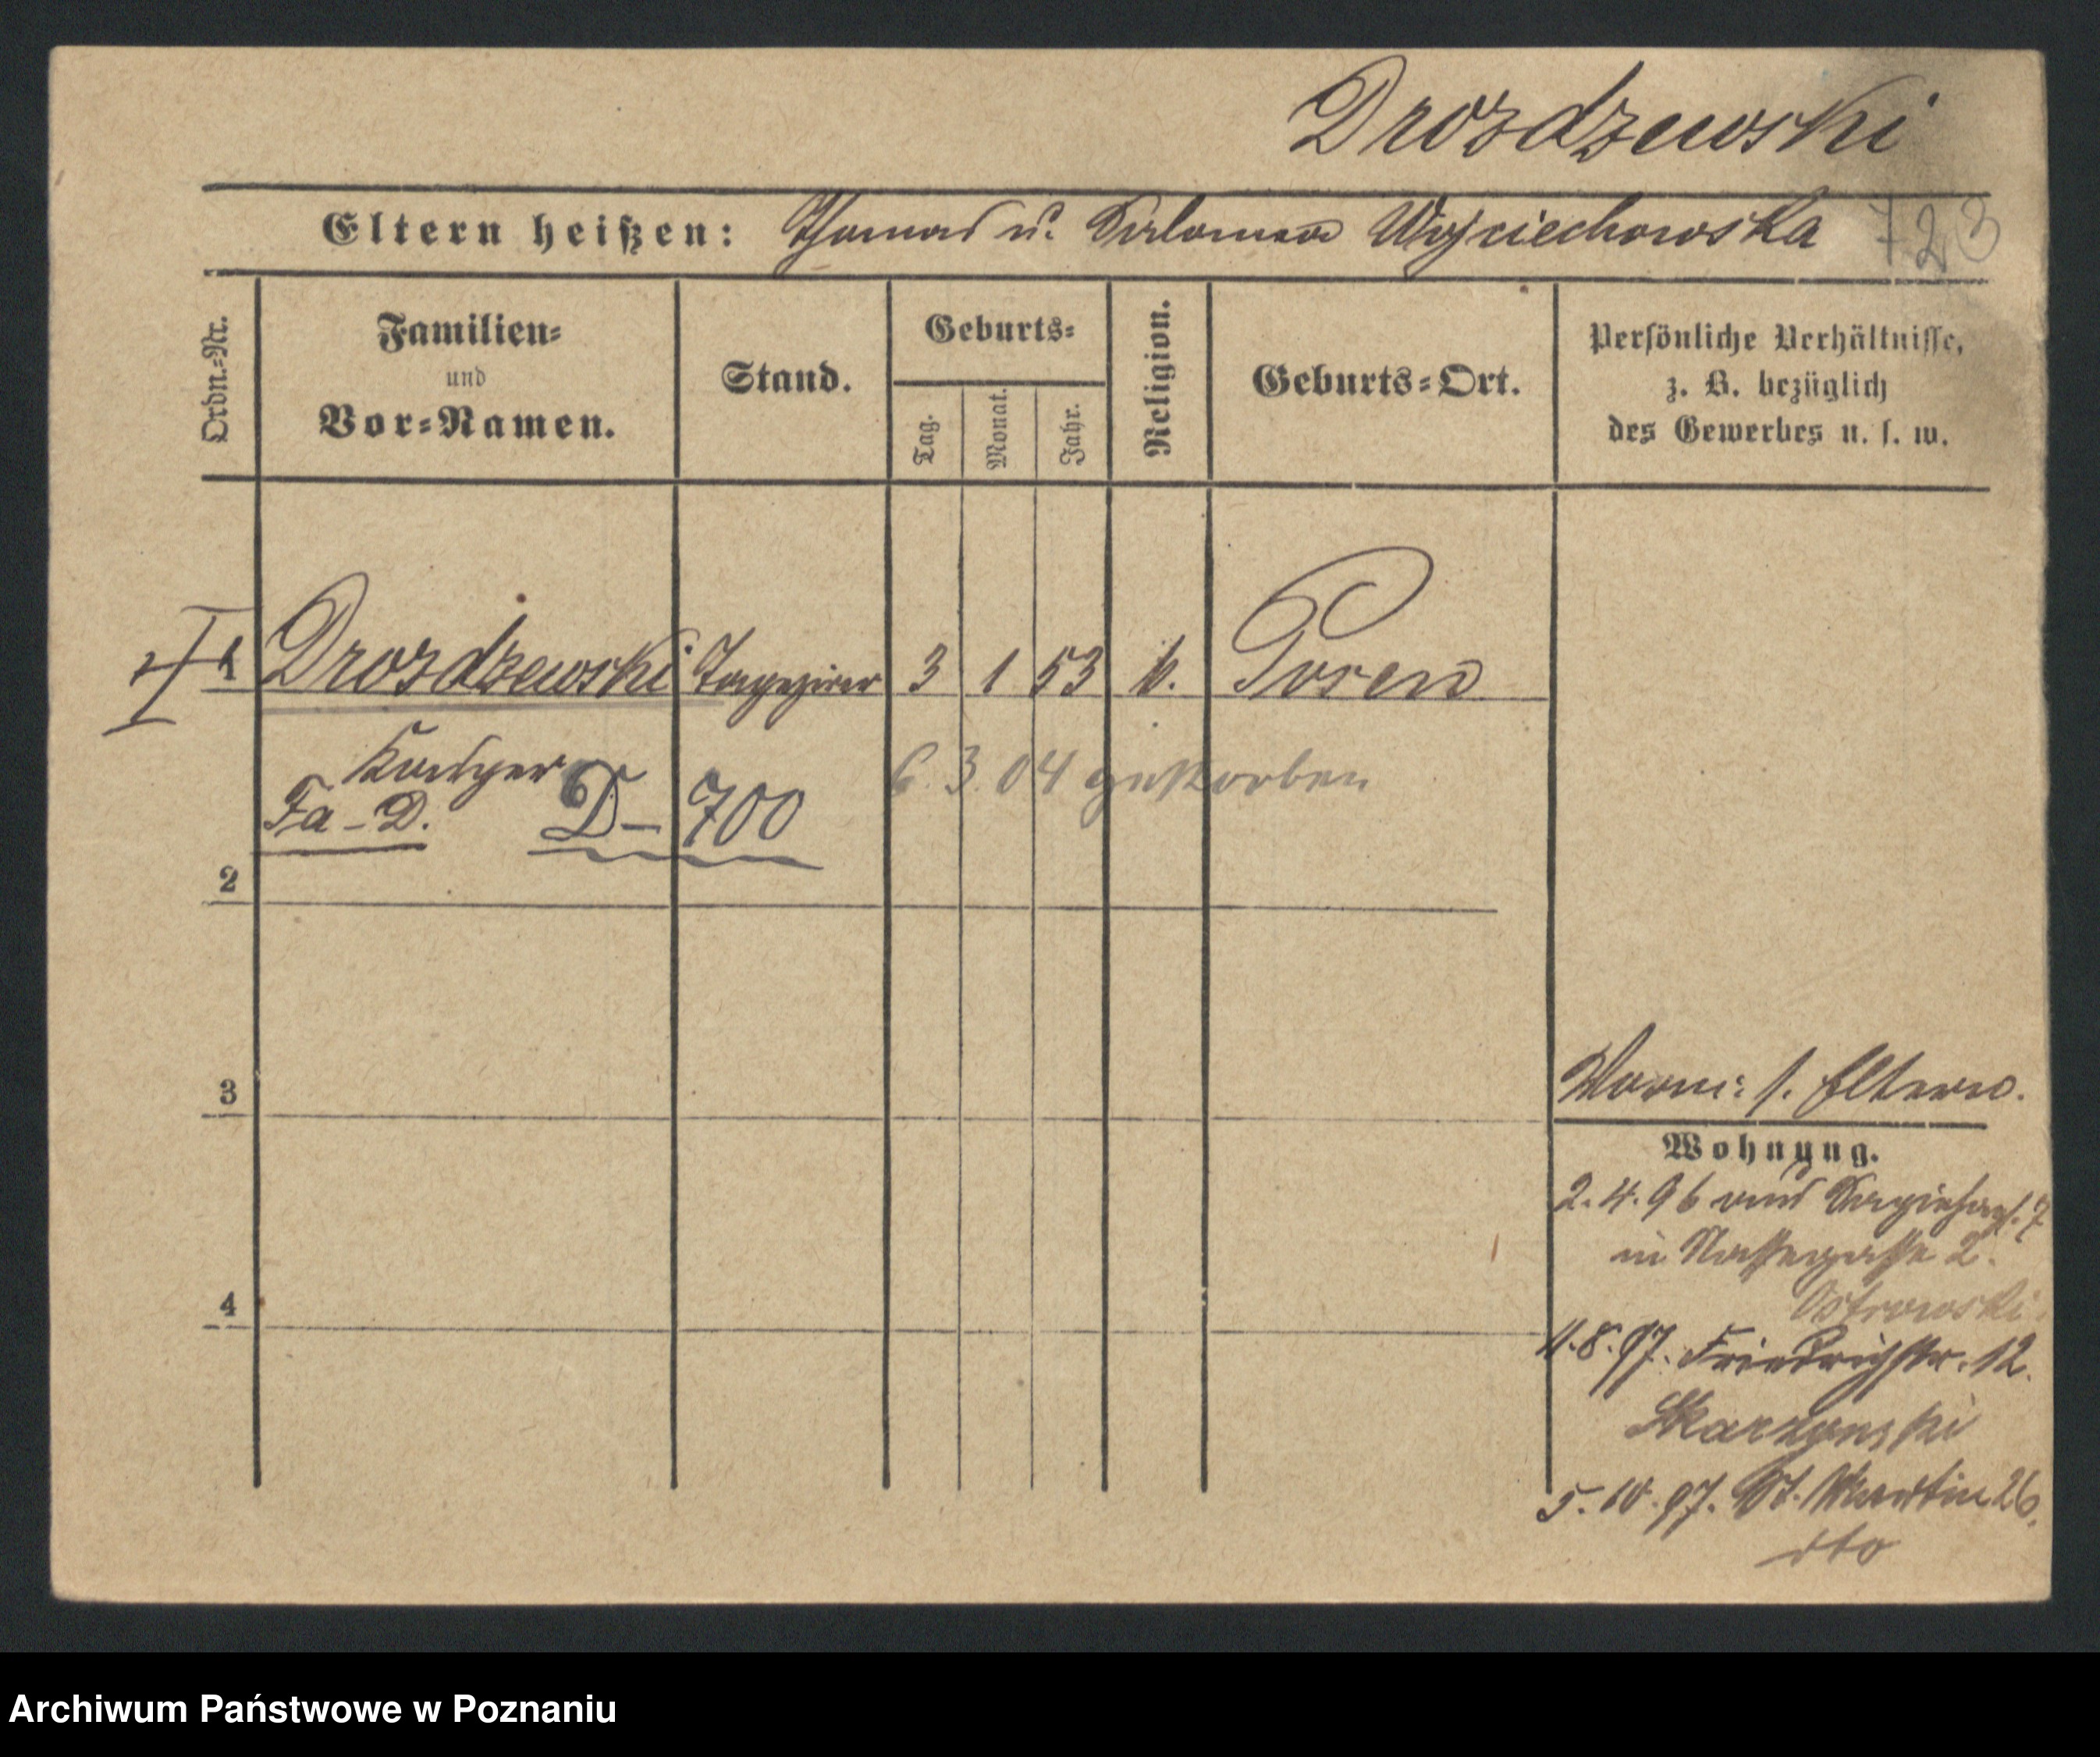 Drozdzewski
Eltern heißen: Thomas u. Salomea Wojciechowska 723
Ordn.-Nr.
Familien-
und
Vor-Namen.
Stand.
Geburts-
Tag.
Monat.
Jahr.
Religion.
Geburts-Ort.
Persönliche Verhältnisse,
z. B. bezüglich
des Gewerbes u. s. w.
1 Drozdzewski Tapezirer 3 1 53 k. Posen
6. 3. 04 gestorben
Fa - D. D - 700
2
3
4
s. Eltern.
Wohnung.
2.4.96 aus 7
in 2.
Ostrowski
11.8.97. Friedrichstr. 12.
Skarzynski
5.10.97. St. Martin 26.
dto
Archiwum Państwowe w Poznaniu